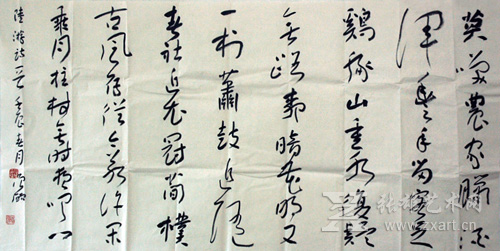 莫笑農家臘酒
渾豐年留客足
鷄豚山重水複疑
無路柳暗花明又
一村簫鼓追隨
春社近衣冠簡樸
古風存從今若許閑
乘月拄杖無時夜叩門
陸游詩 壬辰春月
张雄艺术网
www.zxart.cn